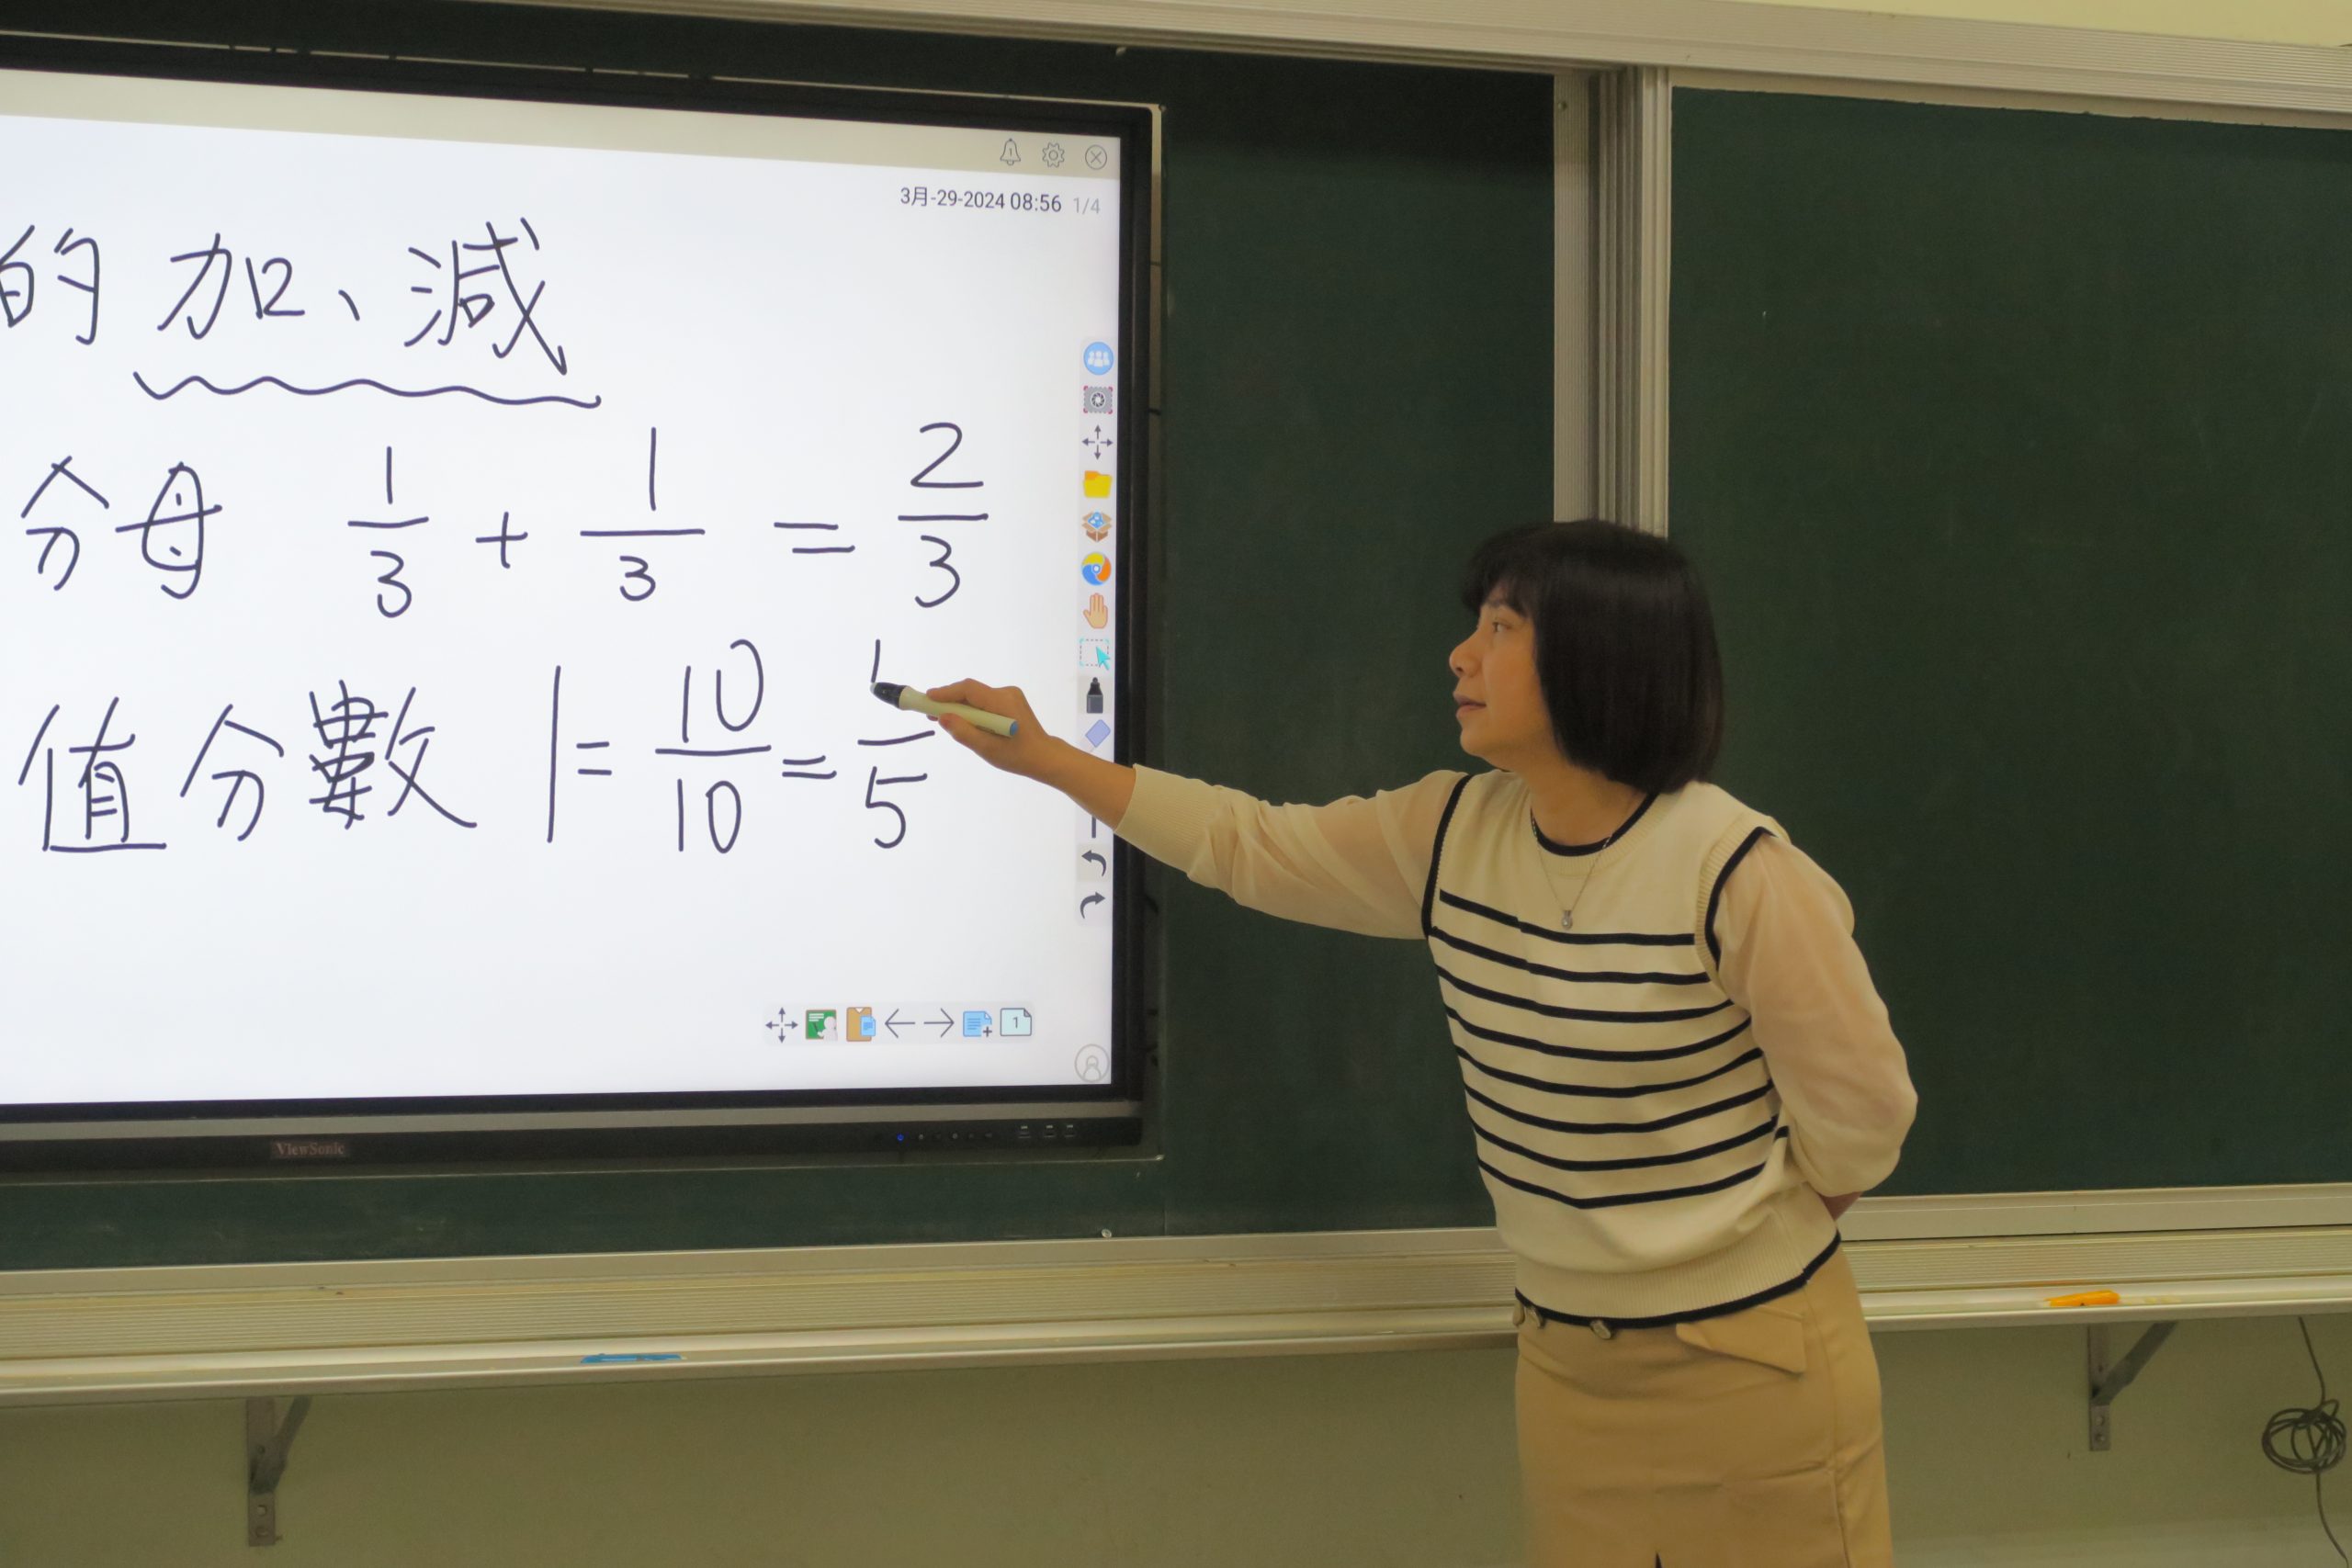 3月-29-2024 08:56 1/4
的加、減
分母 1/3 + 1/3 = 2/3
值分數 1 = 10/10 = /5
1
ViewSonic